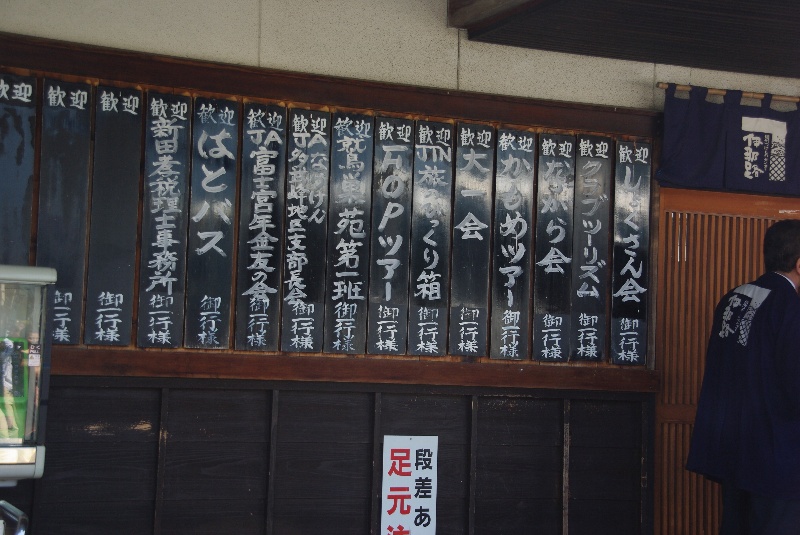 歓迎 しゃくさん会 御一行様
歓迎 クラブツーリズム 御一行様
歓迎 ながら会 御一行様
歓迎 かもめツアー 御一行様
歓迎 大一会 御一行様
歓迎 JTN旅 くり箱 御一行様
歓迎 万OPツアー 御一行様
歓迎 鷲巣苑第一班 御一行様
歓迎 JAなんけん 地区支部長会 御一行様
歓迎 JA富士宮年金友の会 御一行様
歓迎 はとバス 御一行様
歓迎 新田 税理士事務所 御一行様
歓迎 御一行様
歓迎 御一行様
歓迎
伊郡路
伊郡路
段差あ
足元注